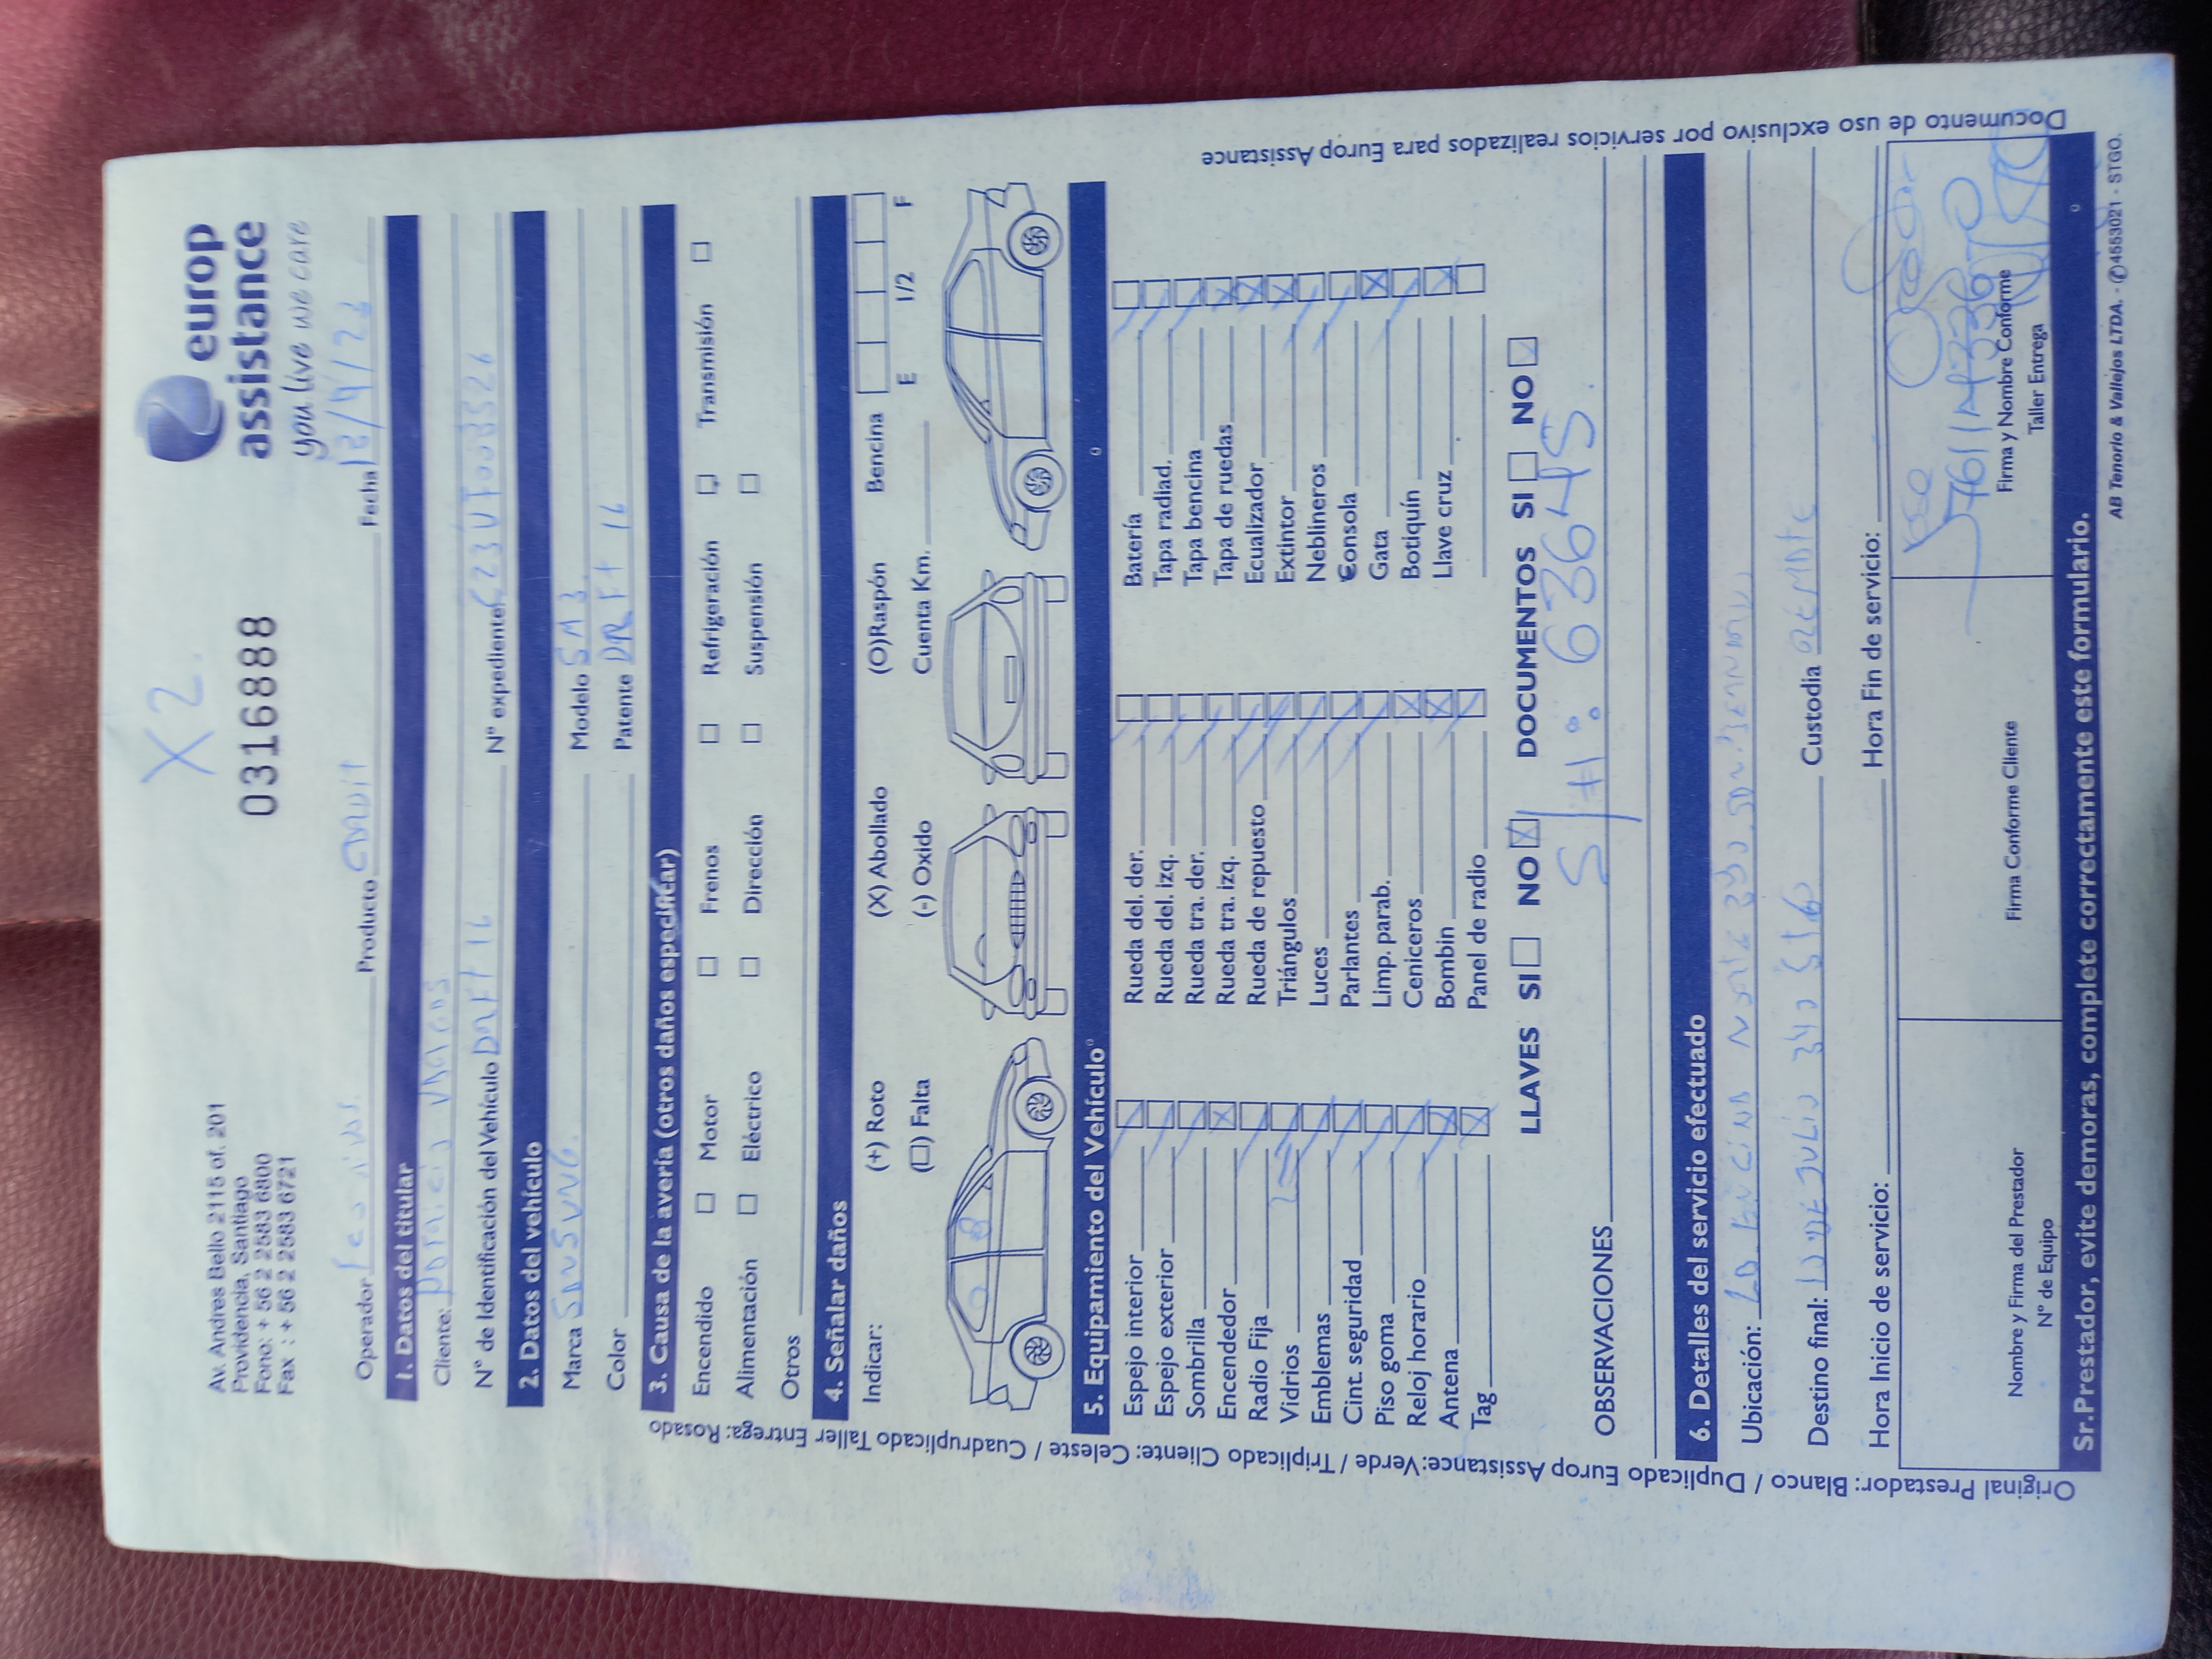 europ
assistance
you live we care
X2.
0316888
Av. Andres Bello 2115 of. 201
Providencia, Santiago
Fono: + 56 2 2583 6800
Fax : + 56 2 2583 6721
Operador Producto Fecha
1. Datos del titular
Cliente:
N° de Identificación del Vehículo DRFT 16 N° expediente
2. Datos del vehículo
Marca Modelo SM3
Color Patente DRFT 16
3. Causa de la avería (otros daños especificar)
Encendido Motor Frenos Refrigeración Transmisión
Alimentación Eléctrico Dirección Suspensión
Otros
4. Señalar daños
Indicar: (+) Roto (X) Abollado (O)Raspón Bencina E 1/2 F
(□) Falta (-) Oxido Cuenta Km.
5. Equipamiento del Vehículo
Espejo interior Rueda del. der. Batería
Espejo exterior Rueda del. izq. Tapa radiad.
Sombrilla Rueda tra. der. Tapa bencina
Encendedor Rueda tra. izq. Tapa de ruedas
Radio Fija Rueda de repuesto Ecualizador
Vidrios Triángulos Extintor
Emblemas Luces Neblineros
Cint. seguridad Parlantes Consola
Piso goma Limp. parab. Gata
Reloj horario Ceniceros Botiquín
Antena Bombin Llave cruz
Tag Panel de radio
LLAVES SI NO DOCUMENTOS SI NO
OBSERVACIONES S/H: 63645.
6. Detalles del servicio efectuado
Ubicación:
Destino final: 10 DE JULIO 340 STGO Custodia
Hora Inicio de servicio: Hora Fin de servicio:
Nombre y Firma del Prestador
N° de Equipo
Firma Conforme Cliente
Firma y Nombre Conforme
Taller Entrega
Sr.Prestador, evite demoras, complete correctamente este formulario.
AB Tenorio & Vallejos LTDA. - ✆4553021 - STGO.
Original Prestador: Blanco / Duplicado Europ Assistance:Verde / Triplicado Cliente: Celeste / Cuadruplicado Taller Entrega: Rosado
Documento de uso exclusivo por servicios realizados para Europ Assistance